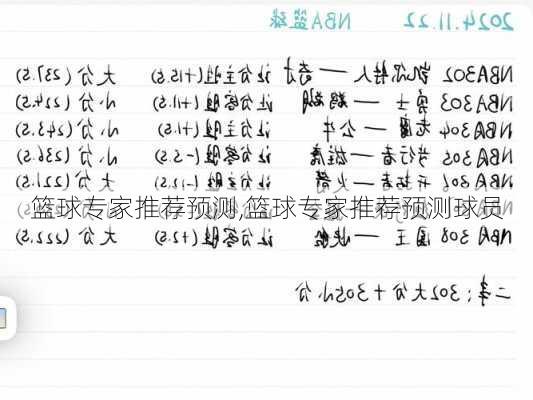 2024.11.22 NBA篮球
NBA302 凯尔特人 — 奇才 让分主胜(+15.5) 大分(237.5)
NBA303 勇士 — 鹈鹕 让分客胜(+11.5) 小分(224.5)
NBA304 老鹰 — 公牛 让分主胜(+1.5) 小分(243.5)
NBA305 步行者 — 雄鹿 让分客胜(-5.5) 小分(236.5)
NBA306 开拓者 — 火箭 大分(221.5)
篮球专家推荐预测,篮球专家推荐预测球员
NBA308 国王 — 快船 让分客胜(+2.5) 大分(222.5)
二串：302大分+305小分